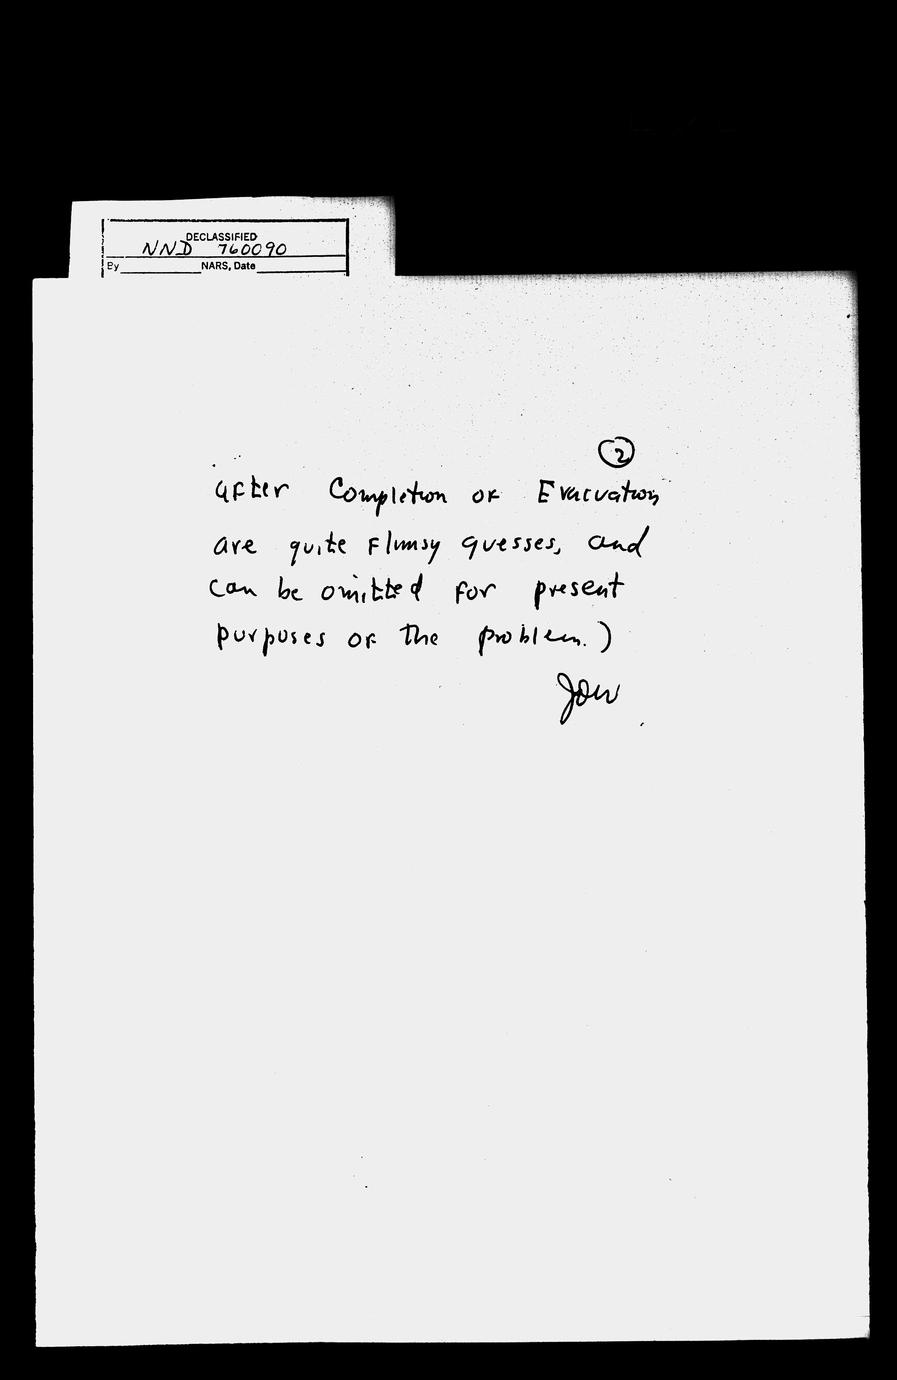 DECLASSIFIED
NND 760090
By NARS, Date
2
after Completion of Evacuation
are quite flimsy guesses, and
can be omitted for present
purposes of the problem.)